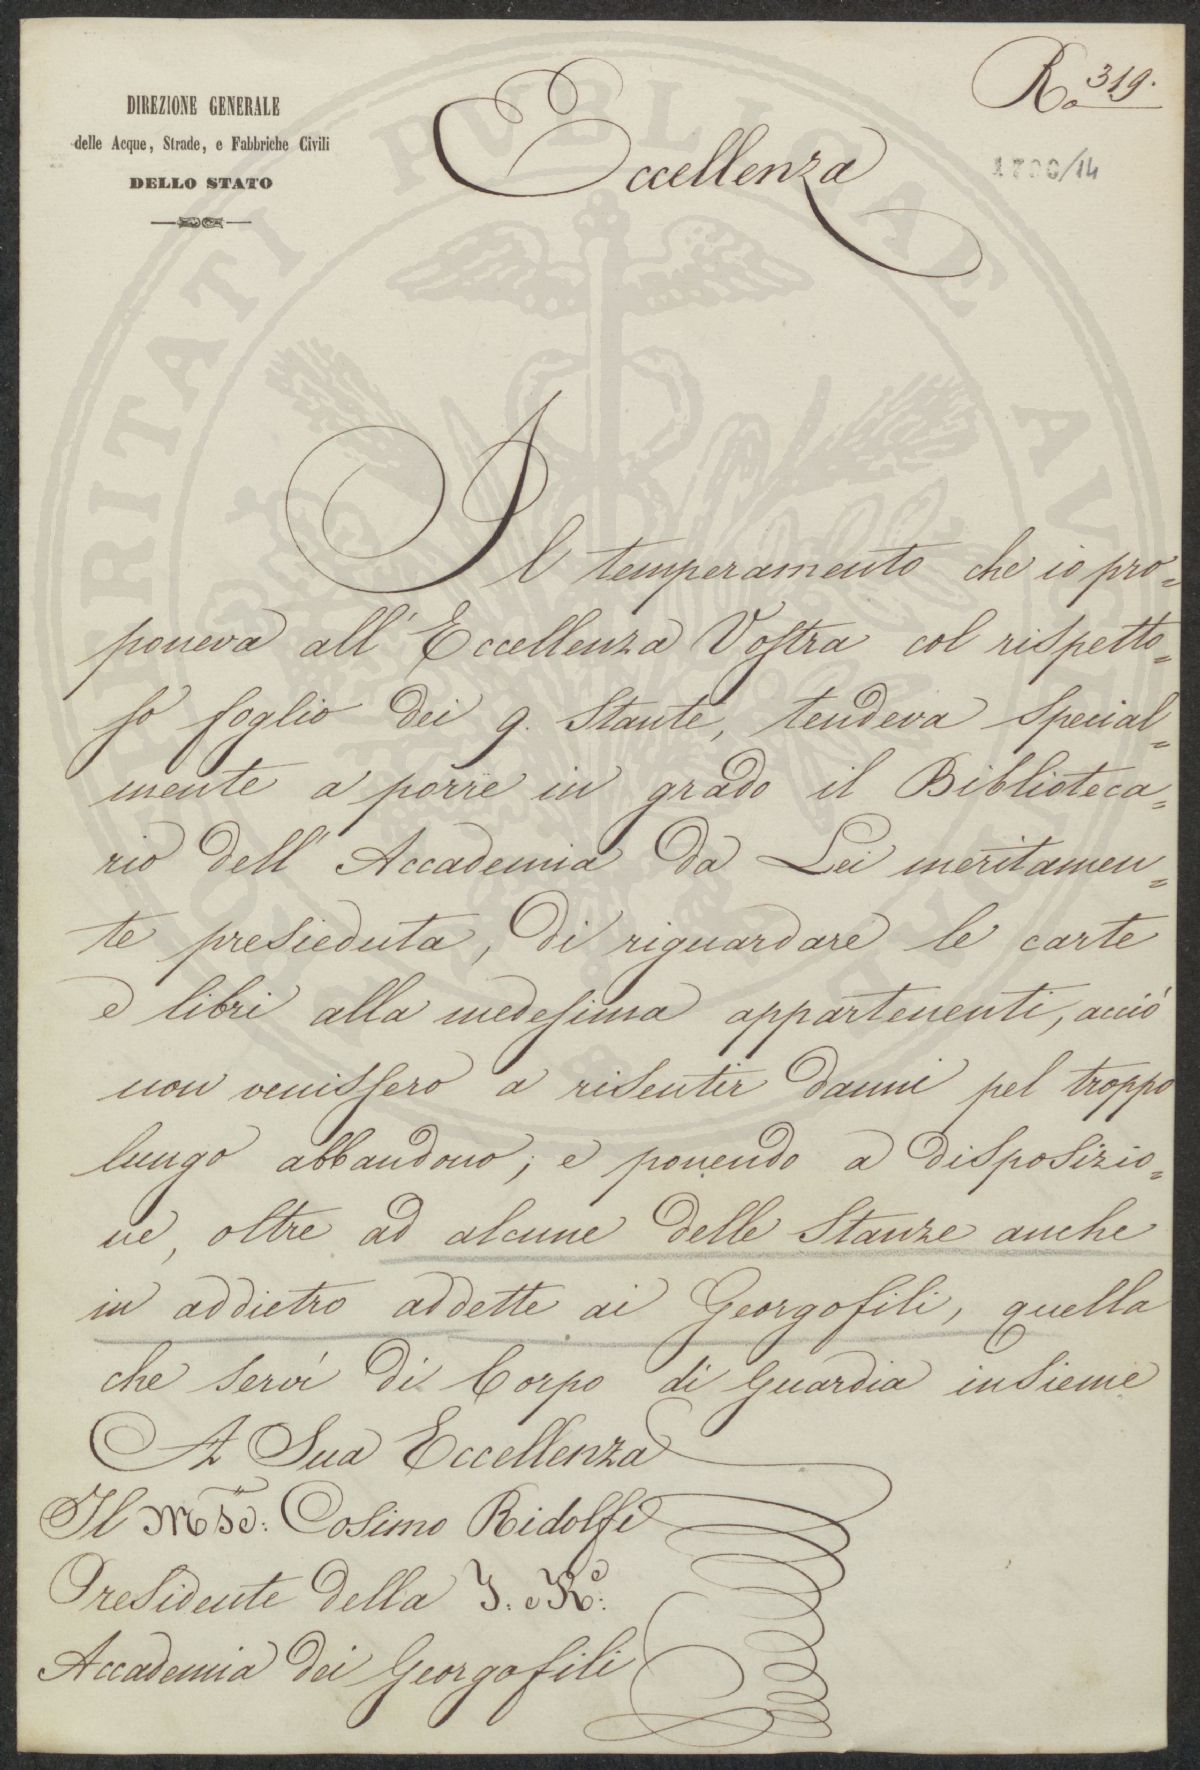 DIREZIONE GENERALE
delle Acque, Strade, e Fabbriche Civili
DELLO STATO
Ro 319.
1700/14
Eccellenza
Il temperamento che io pro=
poneva all' Eccellenza Vostra col rispetto=
so foglio dei 9. Stante, tendeva special=
mente a porre in grado il Biblioteca=
rio dell' Accademia da Lei meritamen=
te presieduta, di riguardare le carte
e libri alla medesima appartenenti, acciò
non venissero a risentir danni pel troppo
lungo abbandono; e ponendo a disposizio=
ne, oltre ad alcune delle Stanze anche
in addietro addette ai Georgofili, quella
che servì di Corpo di Guardia insieme
A Sua Eccellenza
Il M.se: Cosimo Ridolfi
Presidente della I: e R:
Accademia dei Georgofili
PROSPERITATI PUBLICAE AUGENDAE